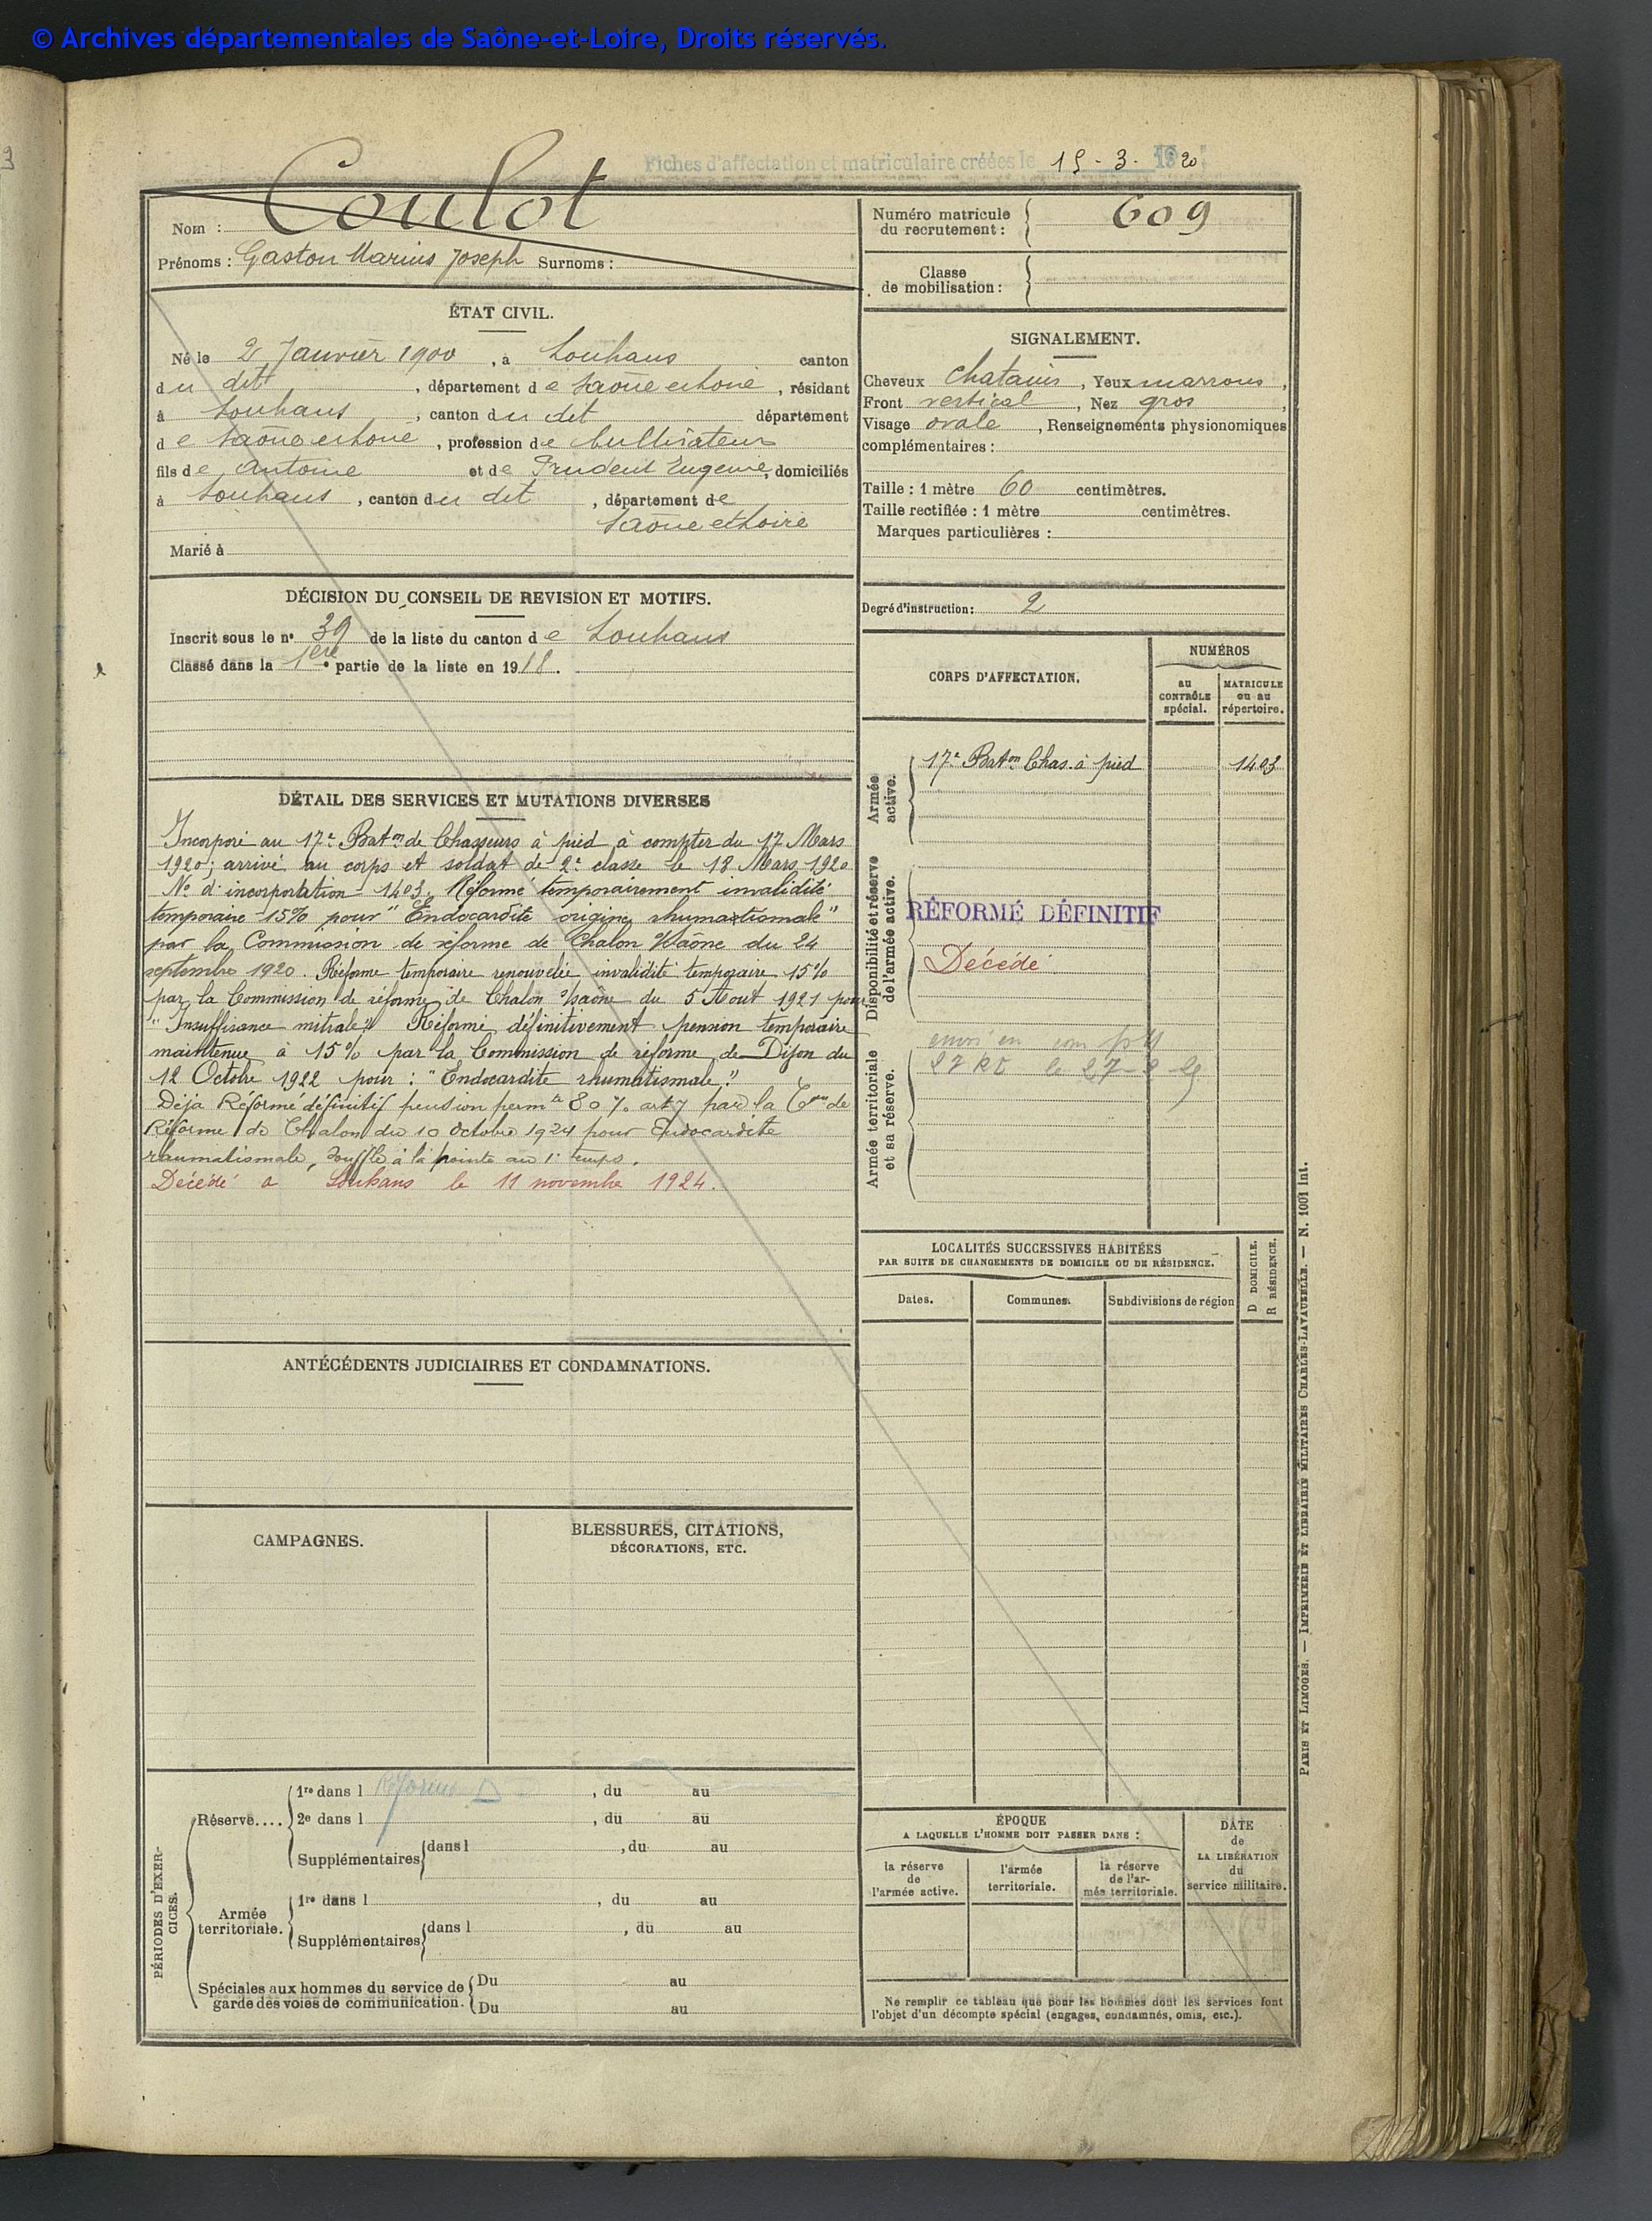 © Archives départementales de Saône-et-Loire, Droits réservés.
Fiches d'affectation et matriculaire créées le 15 - 3 - 1920
Nom : Coulot
Prénoms : Gaston Marius Joseph Surnoms :
Numéro matricule du recrutement : 609
Classe de mobilisation :
ÉTAT CIVIL.
Né le 2 Janvier 1900, à Louhans canton
du dit, département de Saône et Loire, résidant
à Louhans, canton du dit département
de Saône et Loire, profession de Cultivateur
fils de Antoine et de Prudent Eugenie, domiciliés
à Louhans, canton du dit, département de
Saône et Loire
Marié à
SIGNALEMENT.
Cheveux chatains, Yeux marrons,
Front vertical, Nez gros,
Visage ovale, Renseignements physionomiques
complémentaires :
Taille : 1 mètre 60 centimètres.
Taille rectifiée : 1 mètre centimètres.
Marques particulières :
Degré d'instruction : 2
DÉCISION DU CONSEIL DE REVISION ET MOTIFS.
Inscrit sous le n° 39 de la liste du canton de Louhans
Classé dans la 1ère partie de la liste en 1918.
DÉTAIL DES SERVICES ET MUTATIONS DIVERSES
Incorporé au 17e Baton de Chasseurs à pied à compter du 17 Mars
1920; arrivé au corps et soldat de 2e classe le 18 Mars 1920
No d'incorporation 1403. Réformé temporairement invalidité
temporaire 15% pour "Endocardite origine rhumastismale"
par la Commission de réforme de Chalon s/Saône du 24
septembre 1920. Réforme temporaire renouvelée invalidité temporaire 15%
par la Commission de réforme de Chalon s/saône du 5 Aout 1921 pour
"Insuffisance mitrale". Réformé définitivement pension temporaire
maintenue à 15% par la Commission de réforme de Dijon du
12 Octobre 1922 pour : "Endocardite rhumatismale."
Déja Réformé définitif pension permte 80 % art 7 par la Con de
Réforme de Chalon du 10 Octobre 1924 pour Endocardite
rhumatismale, souffle à la pointe au 1er temps.
Décédé à Louhans le 11 novembre 1924.
CORPS D'AFFECTATION.
NUMÉROS
au CONTRÔLE spécial.
MATRICULE ou au répertoire.
Armée active.
17e Baton Chas. à pied 1403
Disponibilité et réserve de l'armée active.
RÉFORMÉ DÉFINITIF
Décédé
Armée territoriale et sa réserve.
LOCALITÉS SUCCESSIVES HABITÉES
PAR SUITE DE CHANGEMENTS DE DOMICILE OU DE RÉSIDENCE.
D DOMICILE.
R RÉSIDENCE.
Dates. Communes. Subdivisions de région
ANTÉCÉDENTS JUDICIAIRES ET CONDAMNATIONS.
CAMPAGNES.
BLESSURES, CITATIONS,
DÉCORATIONS, ETC.
PÉRIODES D'EXERCICES.
Réserve....
1re dans l Réformé D, du au
2e dans l, du au
Supplémentaires dans l, du au
Armée territoriale.
1re dans l, du au
Supplémentaires dans l, du au
Spéciales aux hommes du service de garde des voies de communication.
Du au
Du au
ÉPOQUE
A LAQUELLE L'HOMME DOIT PASSER DANS :
la réserve de l'armée active.
l'armée territoriale.
la réserve de l'armée territoriale.
DATE de LA LIBÉRATION du service militaire.
Ne remplir ce tableau que pour les hommes dont les services font
l'objet d'un décompte spécial (engagés, condamnés, omis, etc.).
PARIS ET LIMOGES. — IMPRIMERIE ET LIBRAIRIE MILITAIRES CHARLES-LAVAUZELLE. — N. 1001 Int.